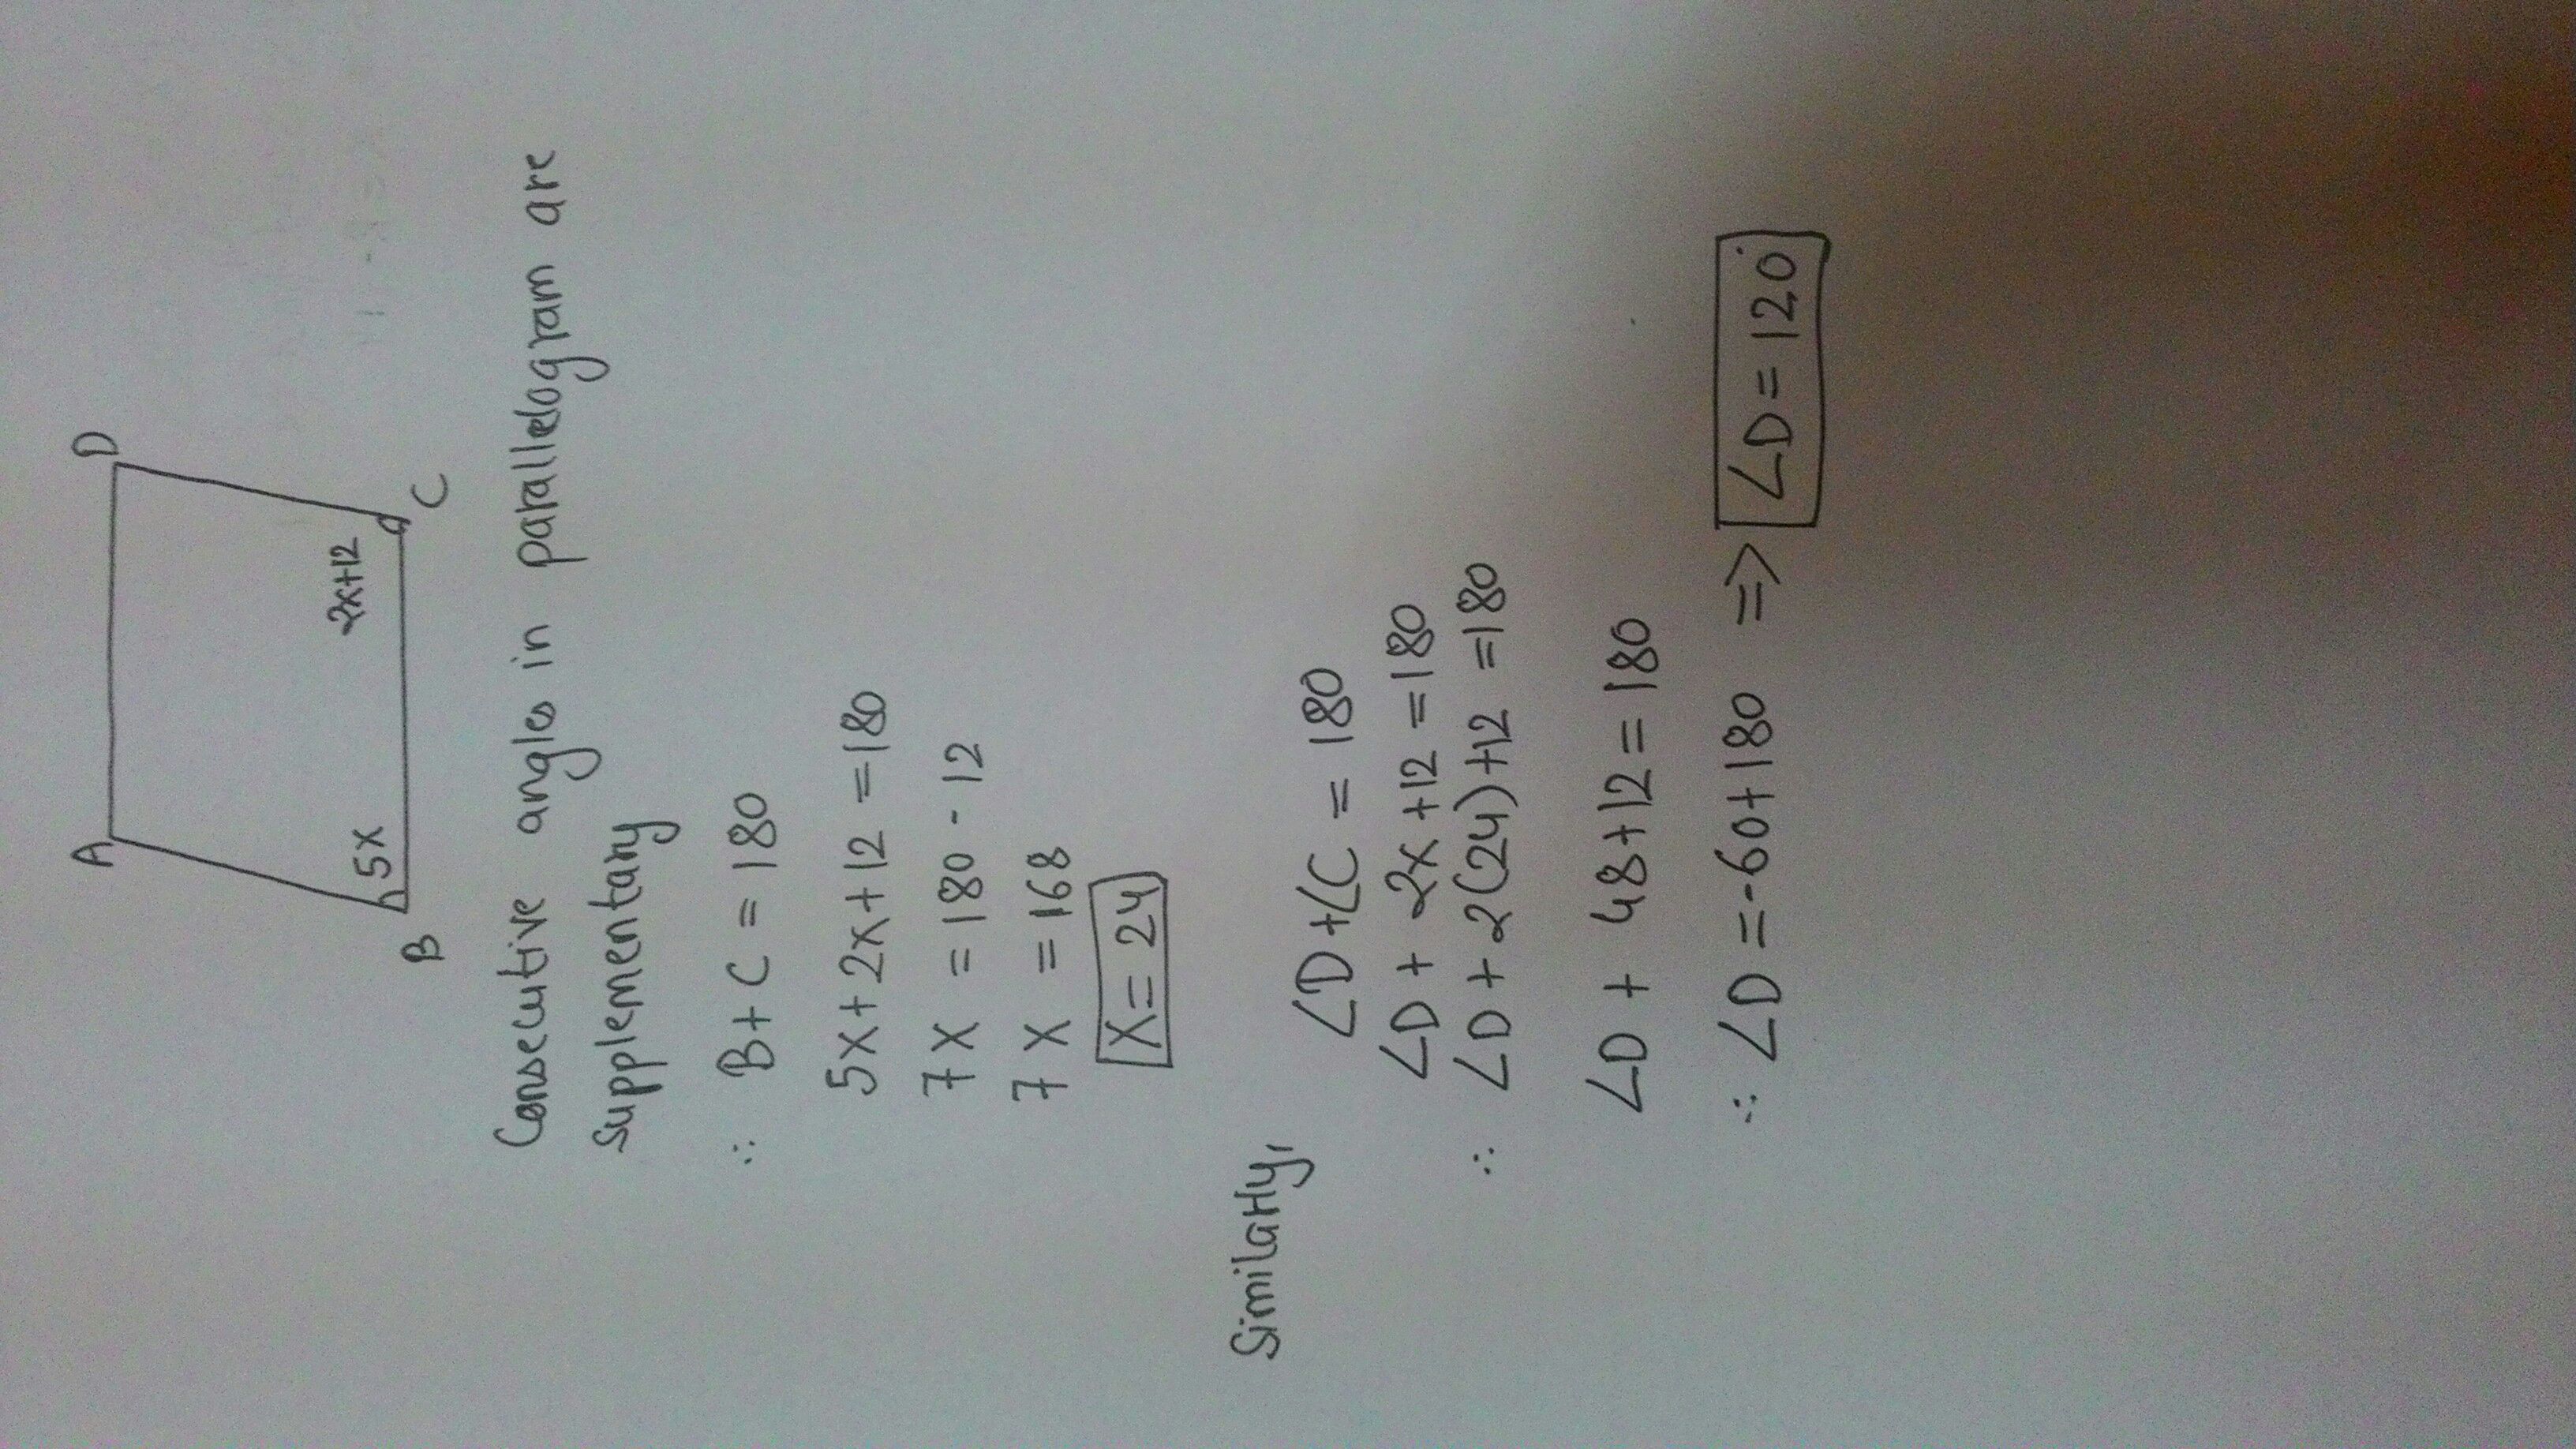 A D
5x 2x+12
B C
Consecutive angles in parallelogram are
Supplementary
∴ B + C = 180
5x + 2x + 12 = 180
7x = 180 - 12
7x = 168
x = 24
Similarly,
∠D + ∠C = 180
∠D + 2x + 12 = 180
∴ ∠D + 2(24) + 12 = 180
∠D + 48 + 12 = 180
∴ ∠D = -60 + 180 => ∠D = 120°